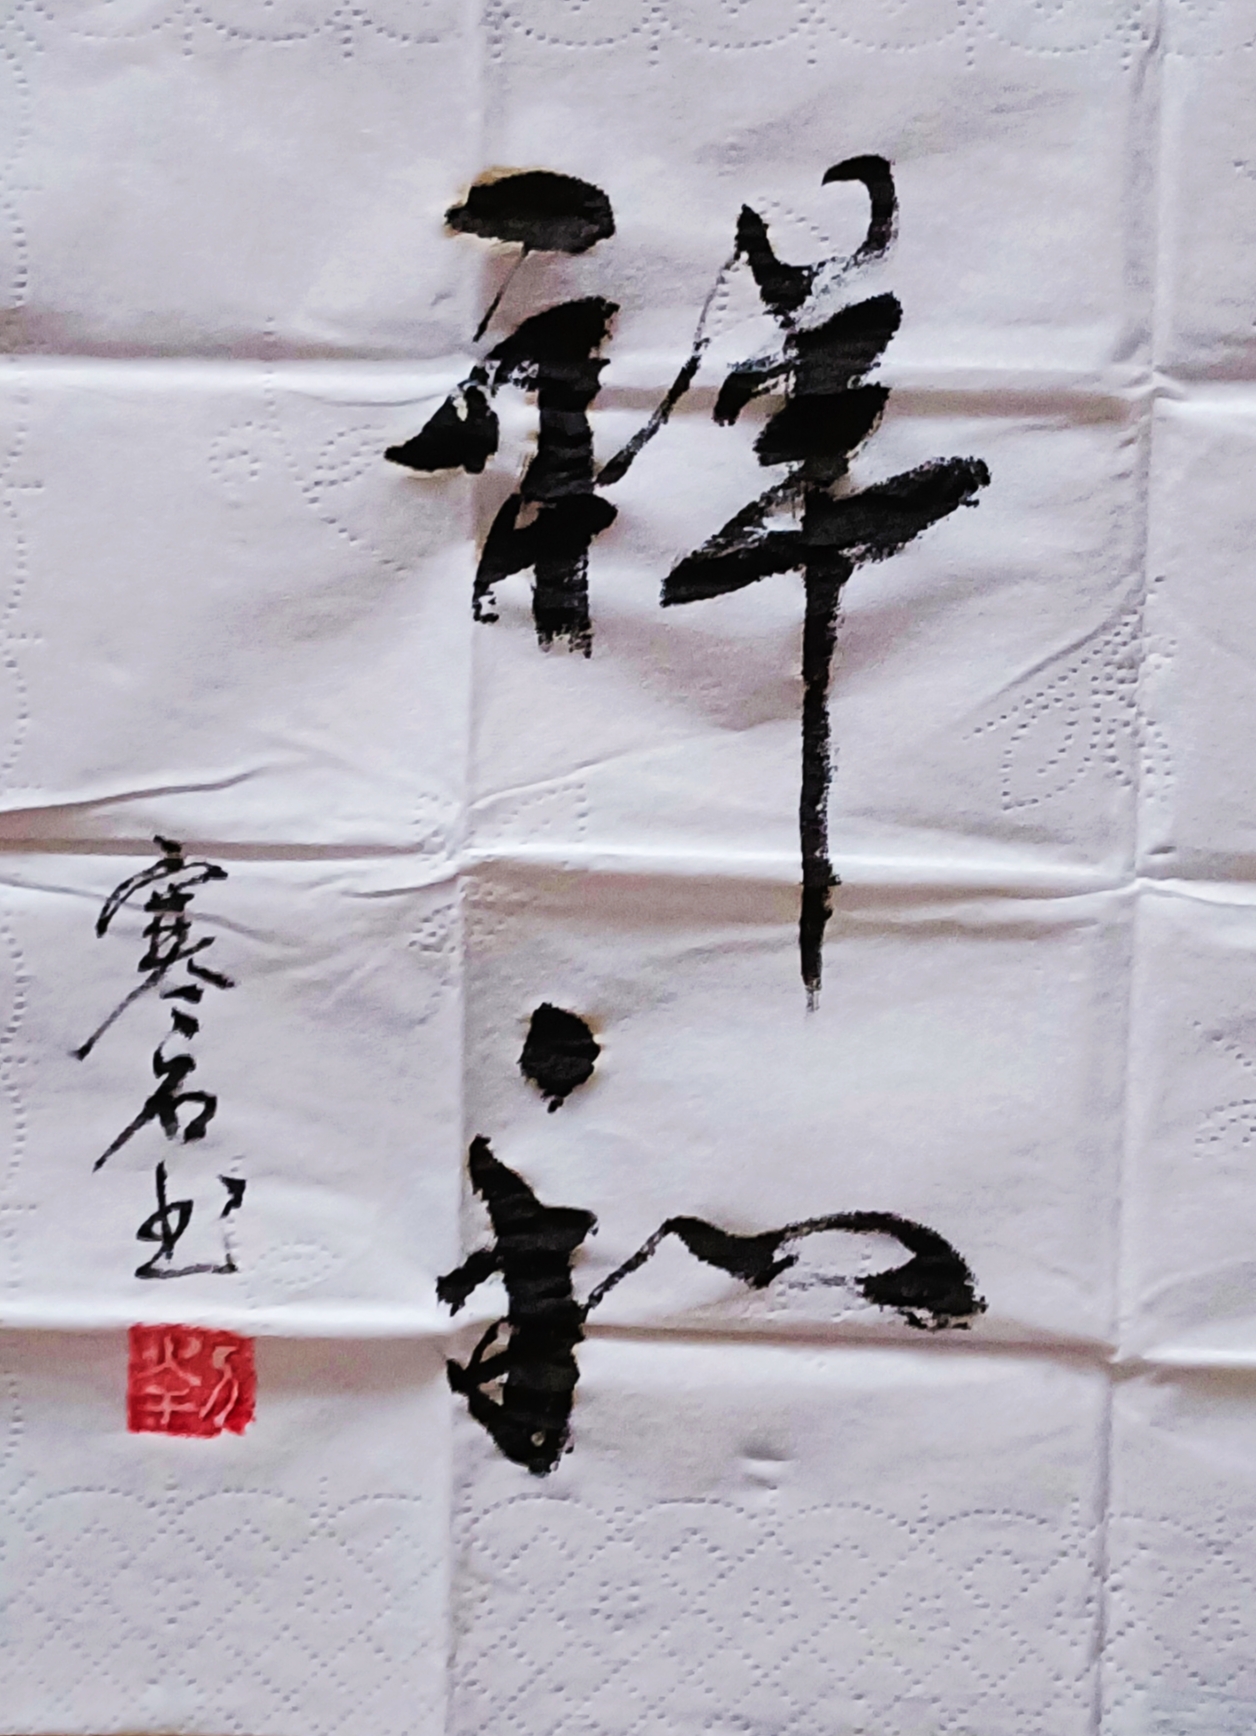 祥和
寒石书